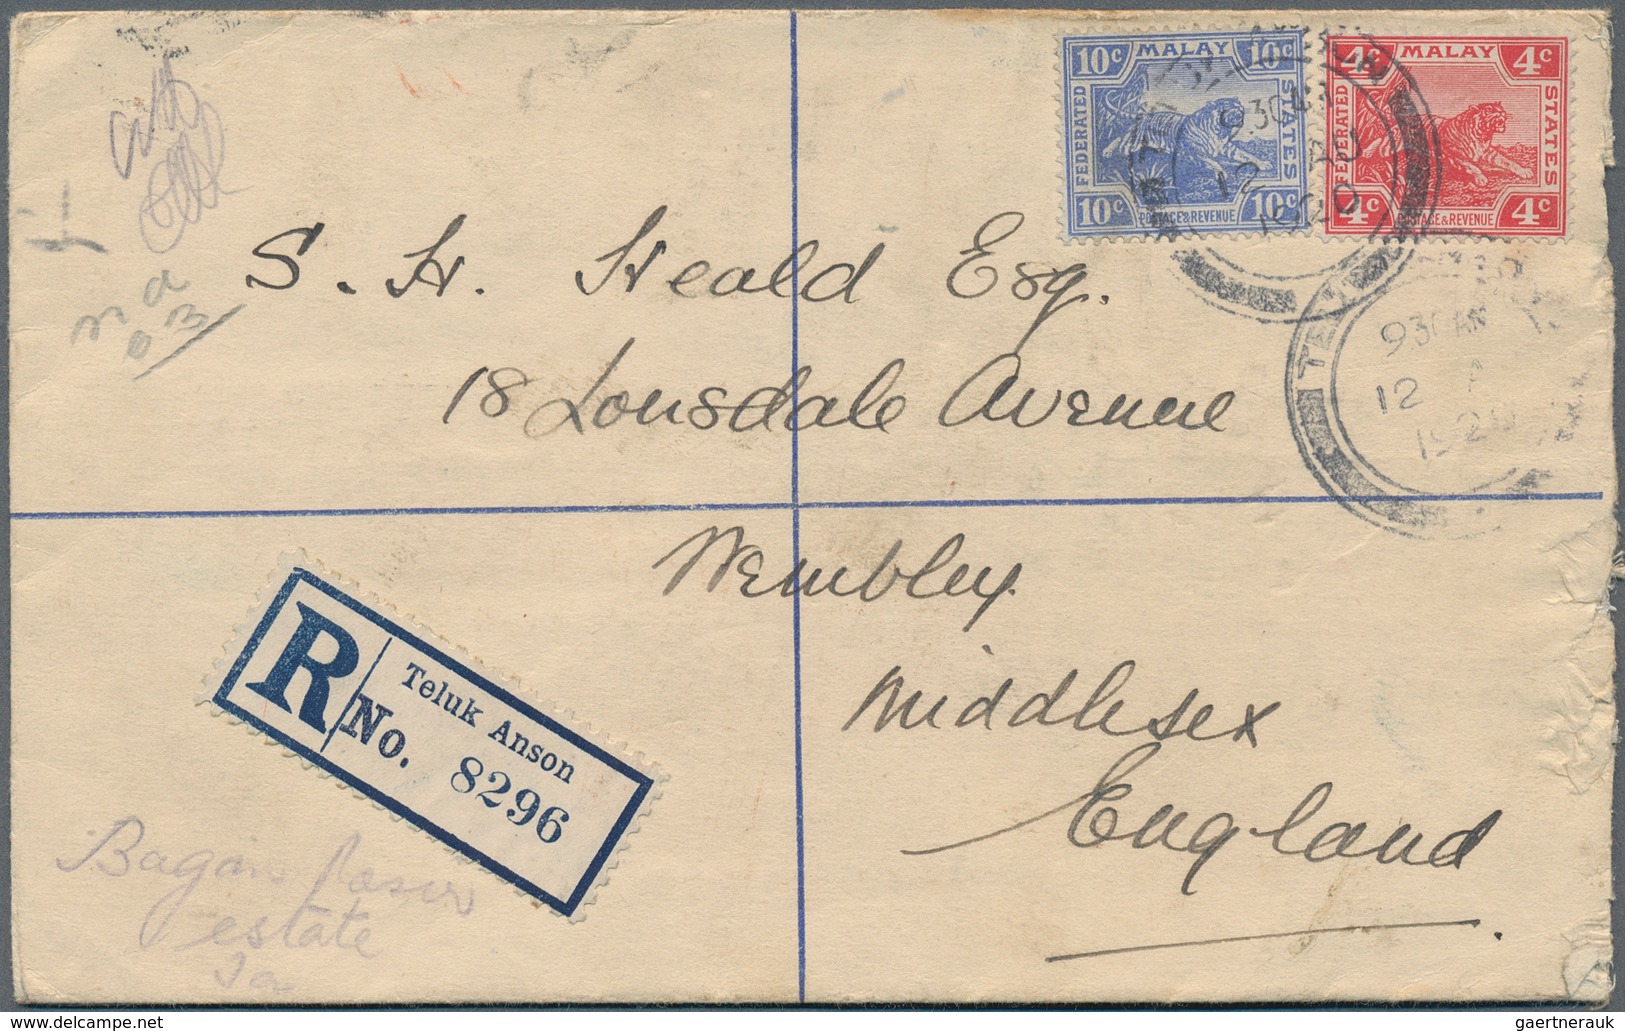 10c MALAY 10c
FEDERATED
STATES
10c POSTAGE & REVENUE 10c
4c MALAY 4c
FEDERATED
STATES
4c POSTAGE & REVENUE 4c
9.30AM
12 AU
1920
9 30AM
12
1920
S. H. Heald Esq.
18 Lonsdale Avenue
Wembley
Middlesex
England
R
Teluk Anson
No. 8296
Bagan
estate
gaertnerauk